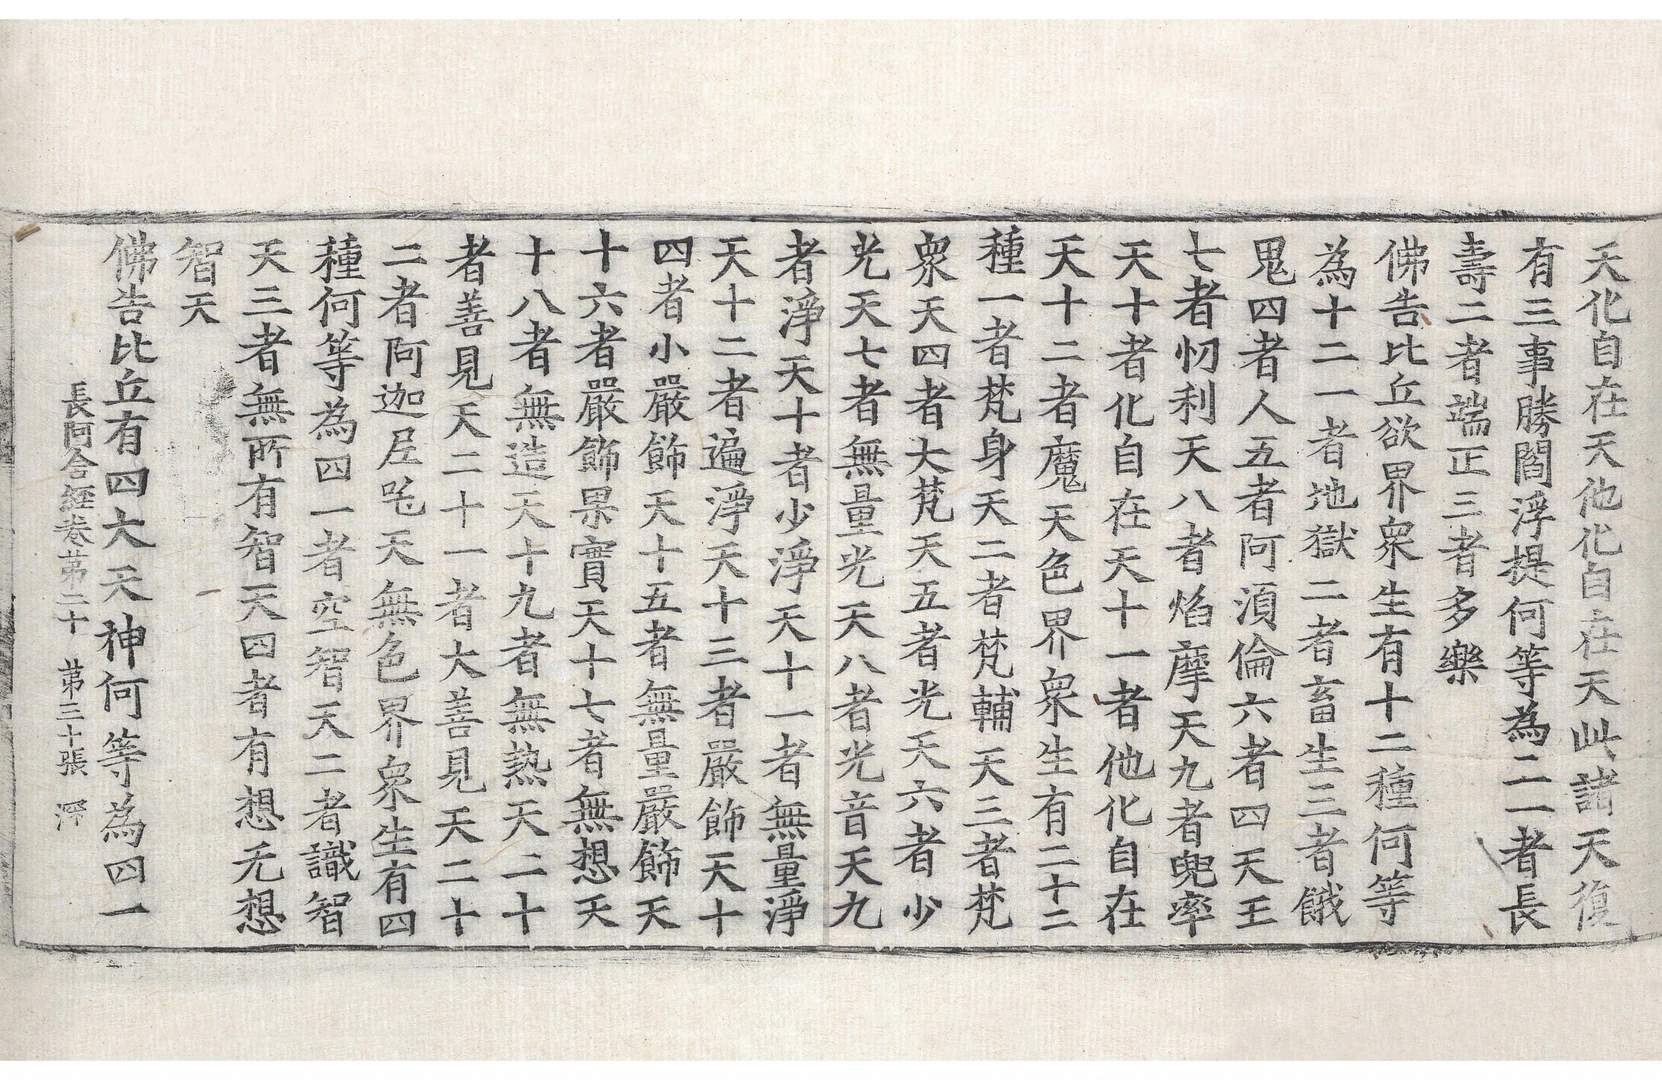 天化自在天他化自在天此諸天復
有三事勝閻浮提何等為三一者長
壽二者端正三者多樂
佛告比丘欲界眾生有十二種何等
為十二一者地獄二者畜生三者餓
鬼四者人五者阿須倫六者四天王
七者忉利天八者焰摩天九者兜率
天十者化自在天十一者他化自在
天十二者魔天色界眾生有二十二
種一者梵身天二者梵輔天三者梵
眾天四者大梵天五者光天六者少
光天七者無量光天八者光音天九
者淨天十者少淨天十一者無量淨
天十二者遍淨天十三者嚴飾天十
四者小嚴飾天十五者無量嚴飾天
十六者嚴飾果實天十七者無想天
十八者無造天十九者無熱天二十
者善見天二十一者大善見天二十
二者阿迦尼吒天無色界眾生有四
種何等為四一者空智天二者識智
天三者無所有智天四者有想无想
智天
佛告比丘有四大天神何等為四一
長阿含經卷第二十 第三十張